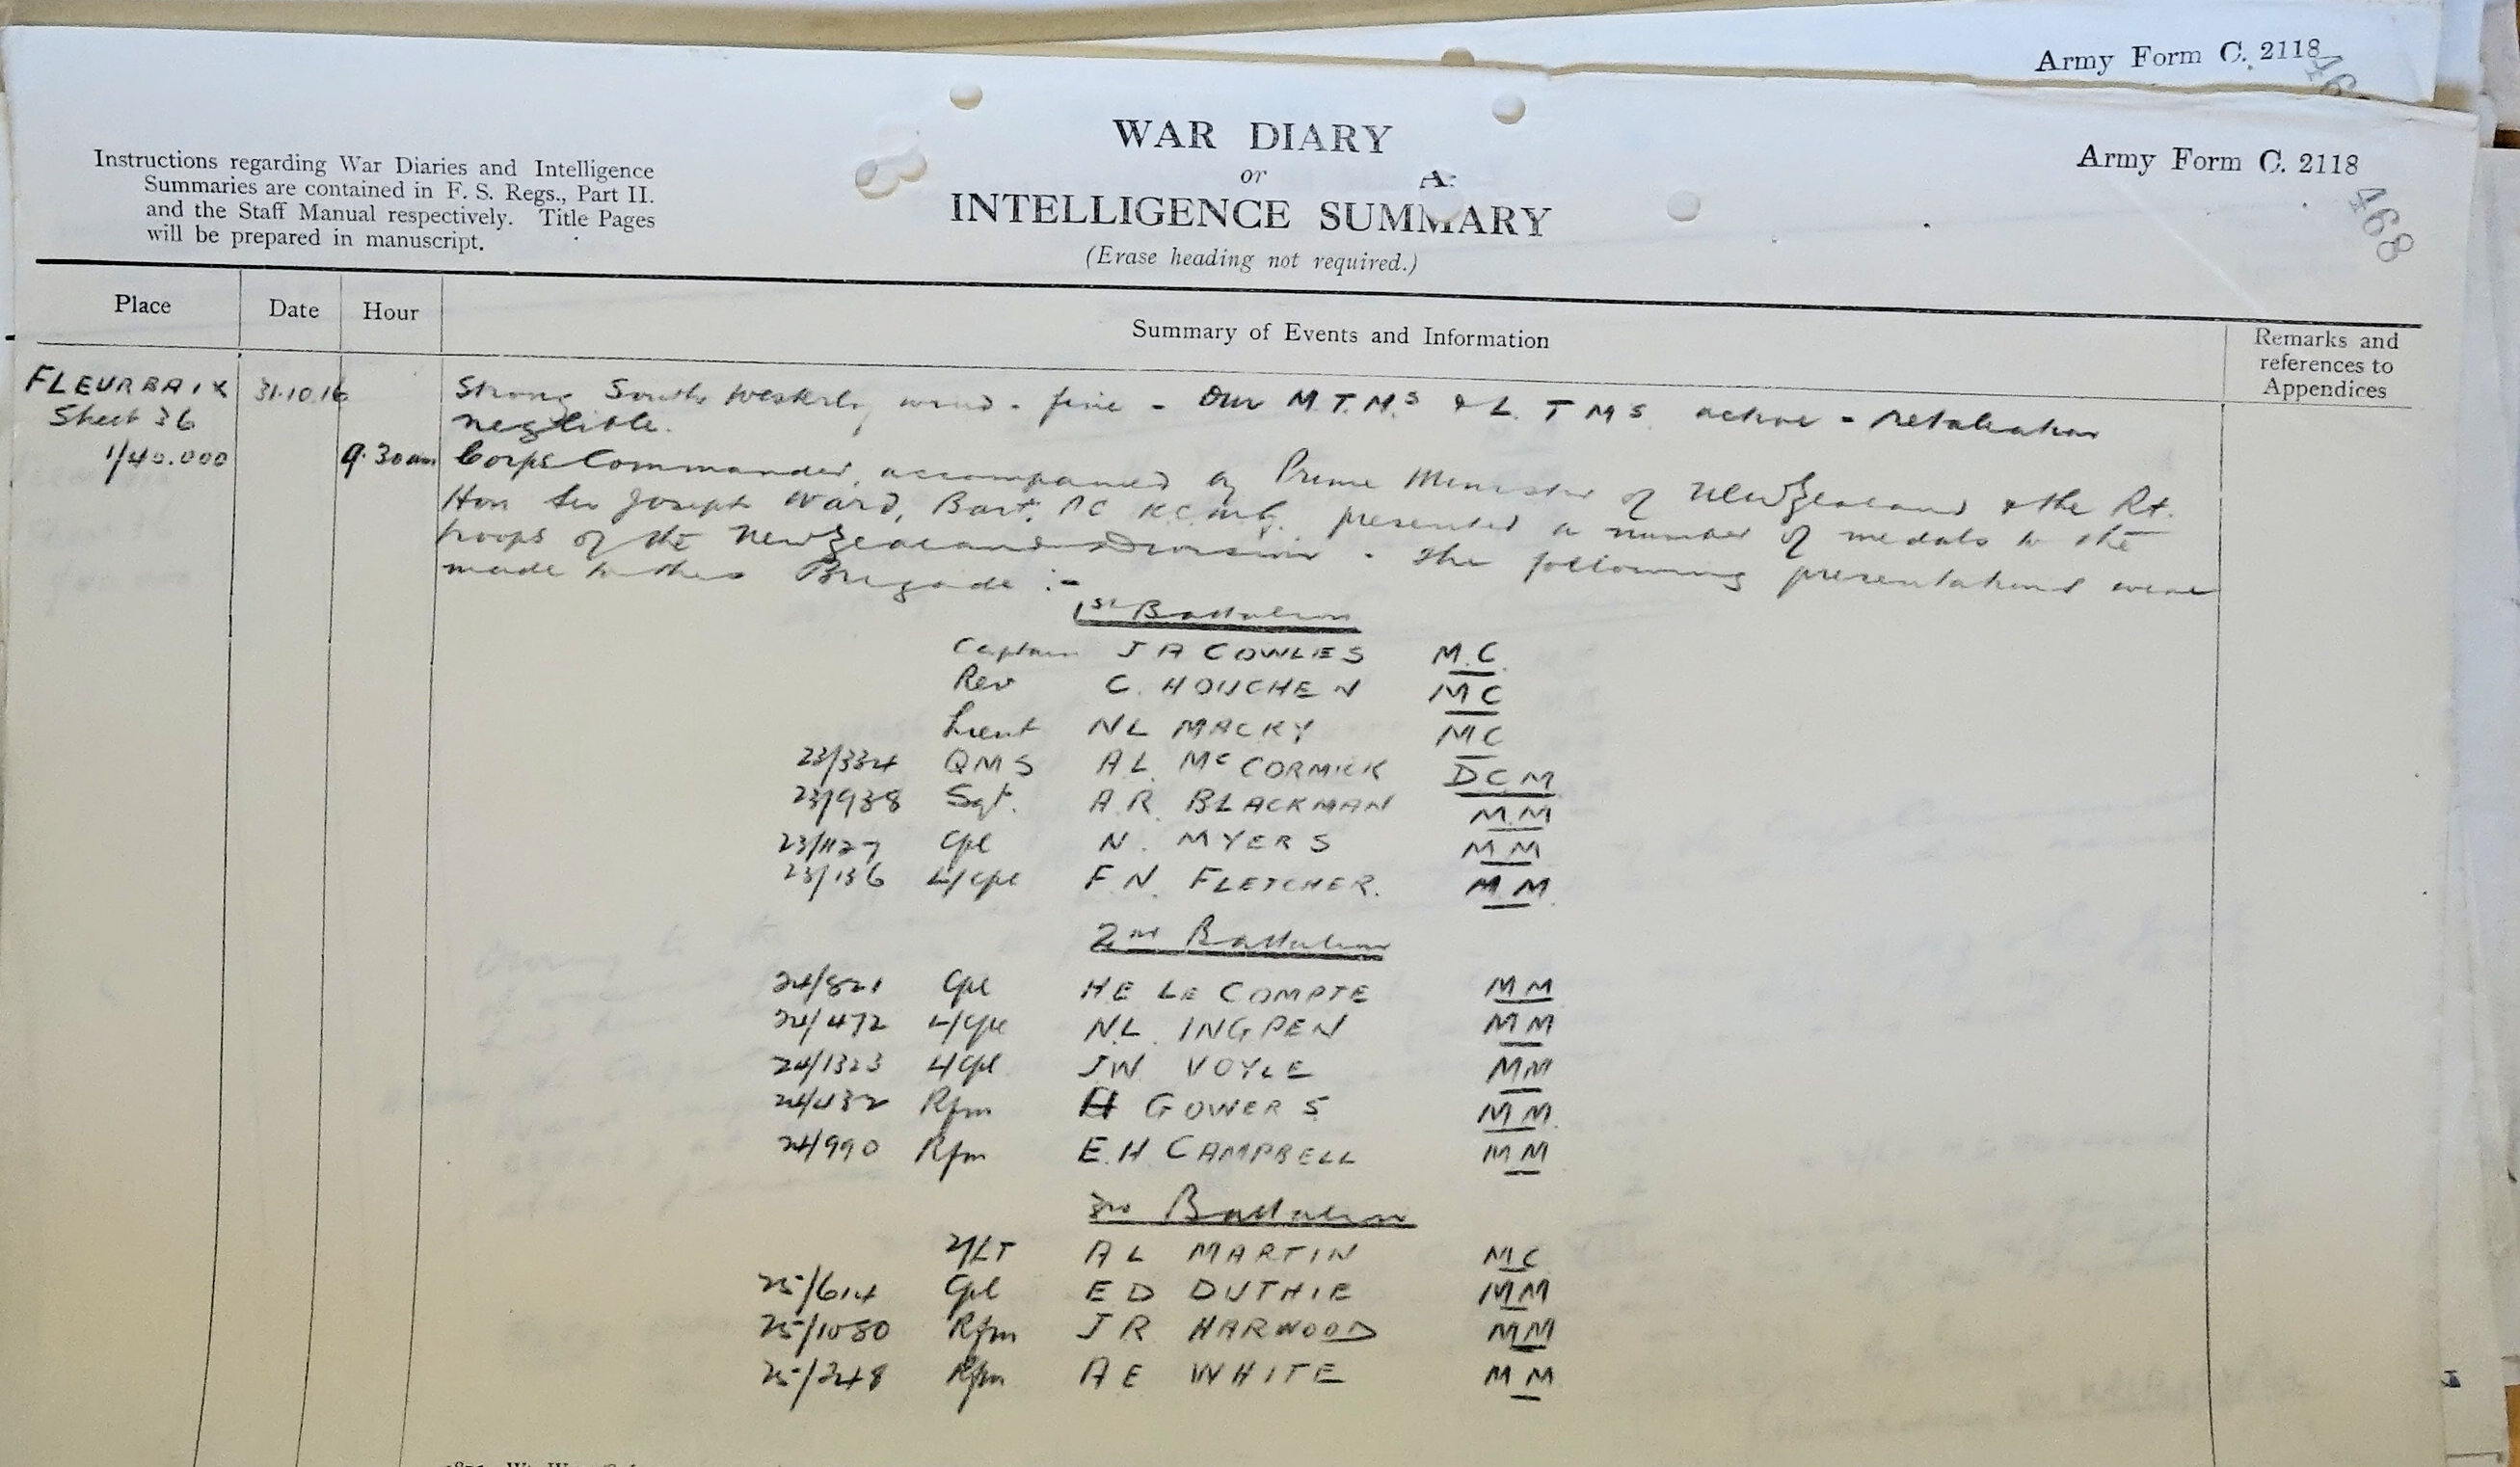 Army Form C. 2118
Army Form C. 2118
468
WAR DIARY
or
A:
INTELLIGENCE SUMMARY
(Erase heading not required.)
Instructions regarding War Diaries and Intelligence
Summaries are contained in F. S. Regs., Part II.
and the Staff Manual respectively. Title Pages
will be prepared in manuscript.
Place Date Hour Summary of Events and Information Remarks and
references to
Appendices
FLEURBAIX 31.10.16 Strong South Westerly wind - fine - Our M.T.M.s & L.T.M.s active - retaliation
Sheet 36 neglible.
1/40.000 9.30am Corps Commander, accompanied by Prime Minister of New Zealand & the Rt.
Hon Sir Joseph Ward, Bart, PC KCMG. presented a number of medals to the
troops of the New Zealand Division - The following presentations were
made to this Brigade :-
1st Battalion
Captain J A COWLES M.C.
Rev C. HOUCHEN MC
Lieut NL MACKY MC
23/334 QMS AL McCORMICK DCM
23/938 Sgt. A.R. BLACKMAN M.M
23/1127 Cpl N. MYERS MM
23/136 L/Cpl F N. FLETCHER. MM
2nd Battalion
24/821 Cpl HE LE COMPTE MM
24/472 L/Cpl N.L. INGPEN MM
24/1323 L/Cpl JW VOYLE MM
24/432 Rfm H GOWERS MM.
24/990 Rfm E.H CAMPBELL MM
3rd Battalion
2/LT A L MARTIN MC
25/614 Cpl E D DUTHIE MM
25/1080 Rfm J R HARWOOD MM
25/248 Rfm A E WHITE MM